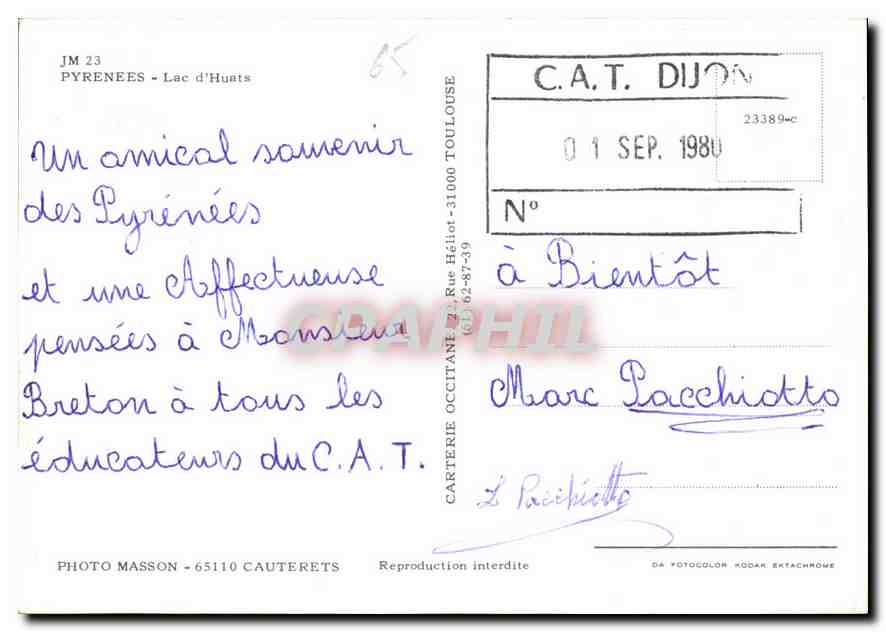 JM 23
PYRENEES - Lac d'Huats
65
Un amical souvenir
des Pyrénées
et une Affectueuse
pensées à Monsieur
Breton à tous les
éducateurs du C.A.T.
PHOTO MASSON - 65110 CAUTERETS
Reproduction interdite
CARTERIE OCCITANE, 22, Rue Héliot - 31000 TOULOUSE
(61) 62-87-39
C.A.T. DIJON
23389-c
01 SEP. 1980
N°
à Bientôt
CPAPHIL
Marc Pacchiotto
L Pacchiotto
DA FOTOCOLOR KODAK EKTACHROME